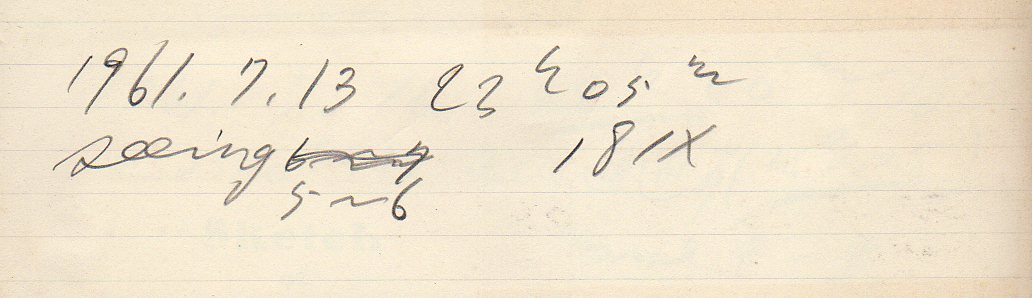 1961. 7. 13 23ʰ05ᵐ
seeing 6~7 181X
5~6